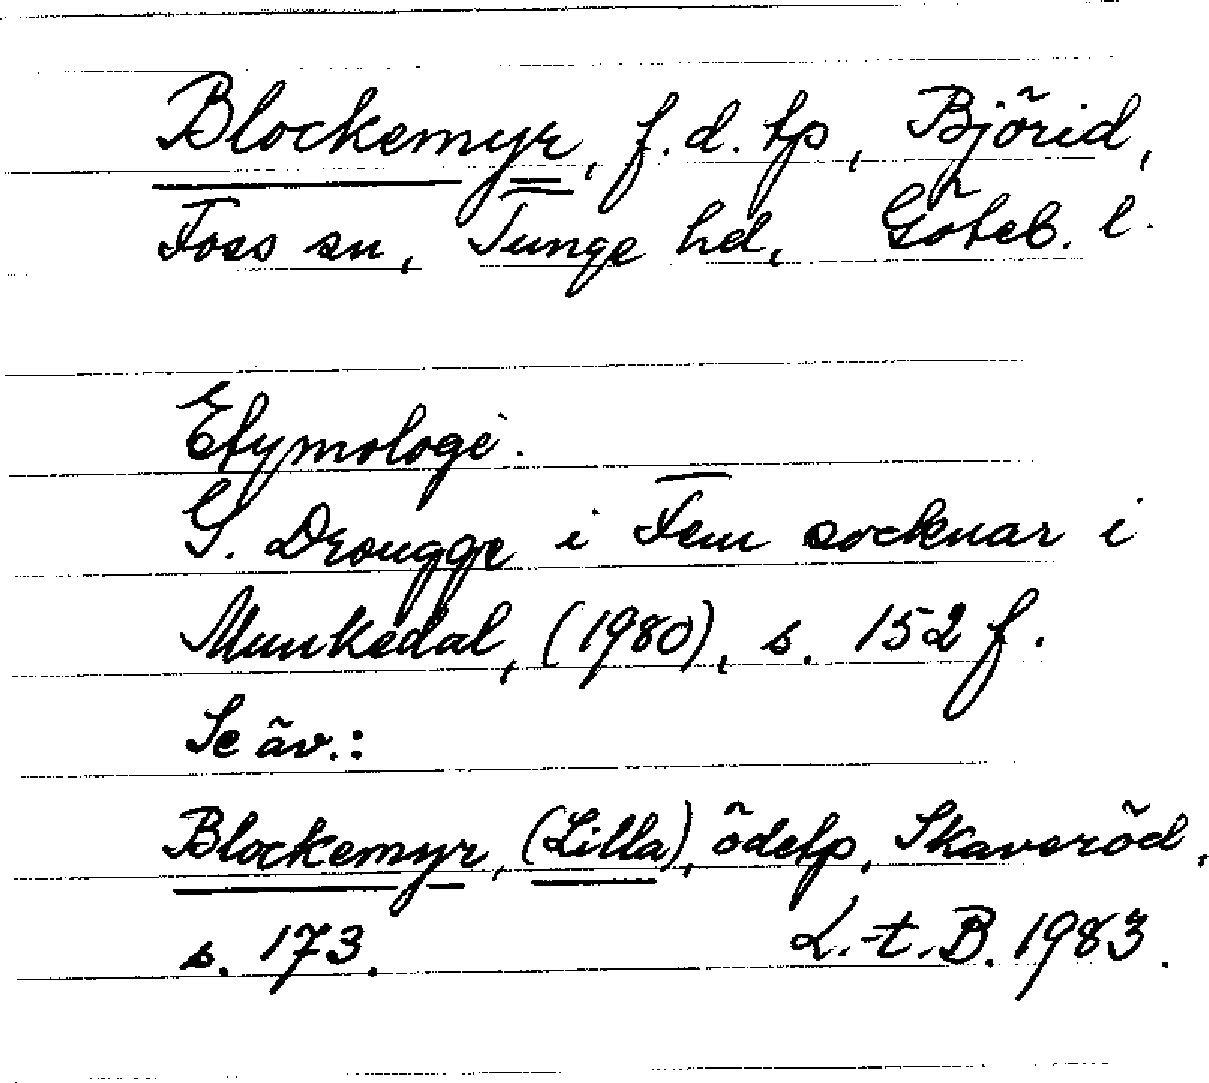 Blockemyr, f.d. tp, Björid,
Foss sn, Tunge hd, Göteb. l.
Etymologi.
G. Drougge i Fem socknar i
Munkedal, (1980), s. 152 f.
Se äv.:
Blockemyr, (Lilla), ödetp, Skaveröd,
s. 173. L.-t. B. 1983.